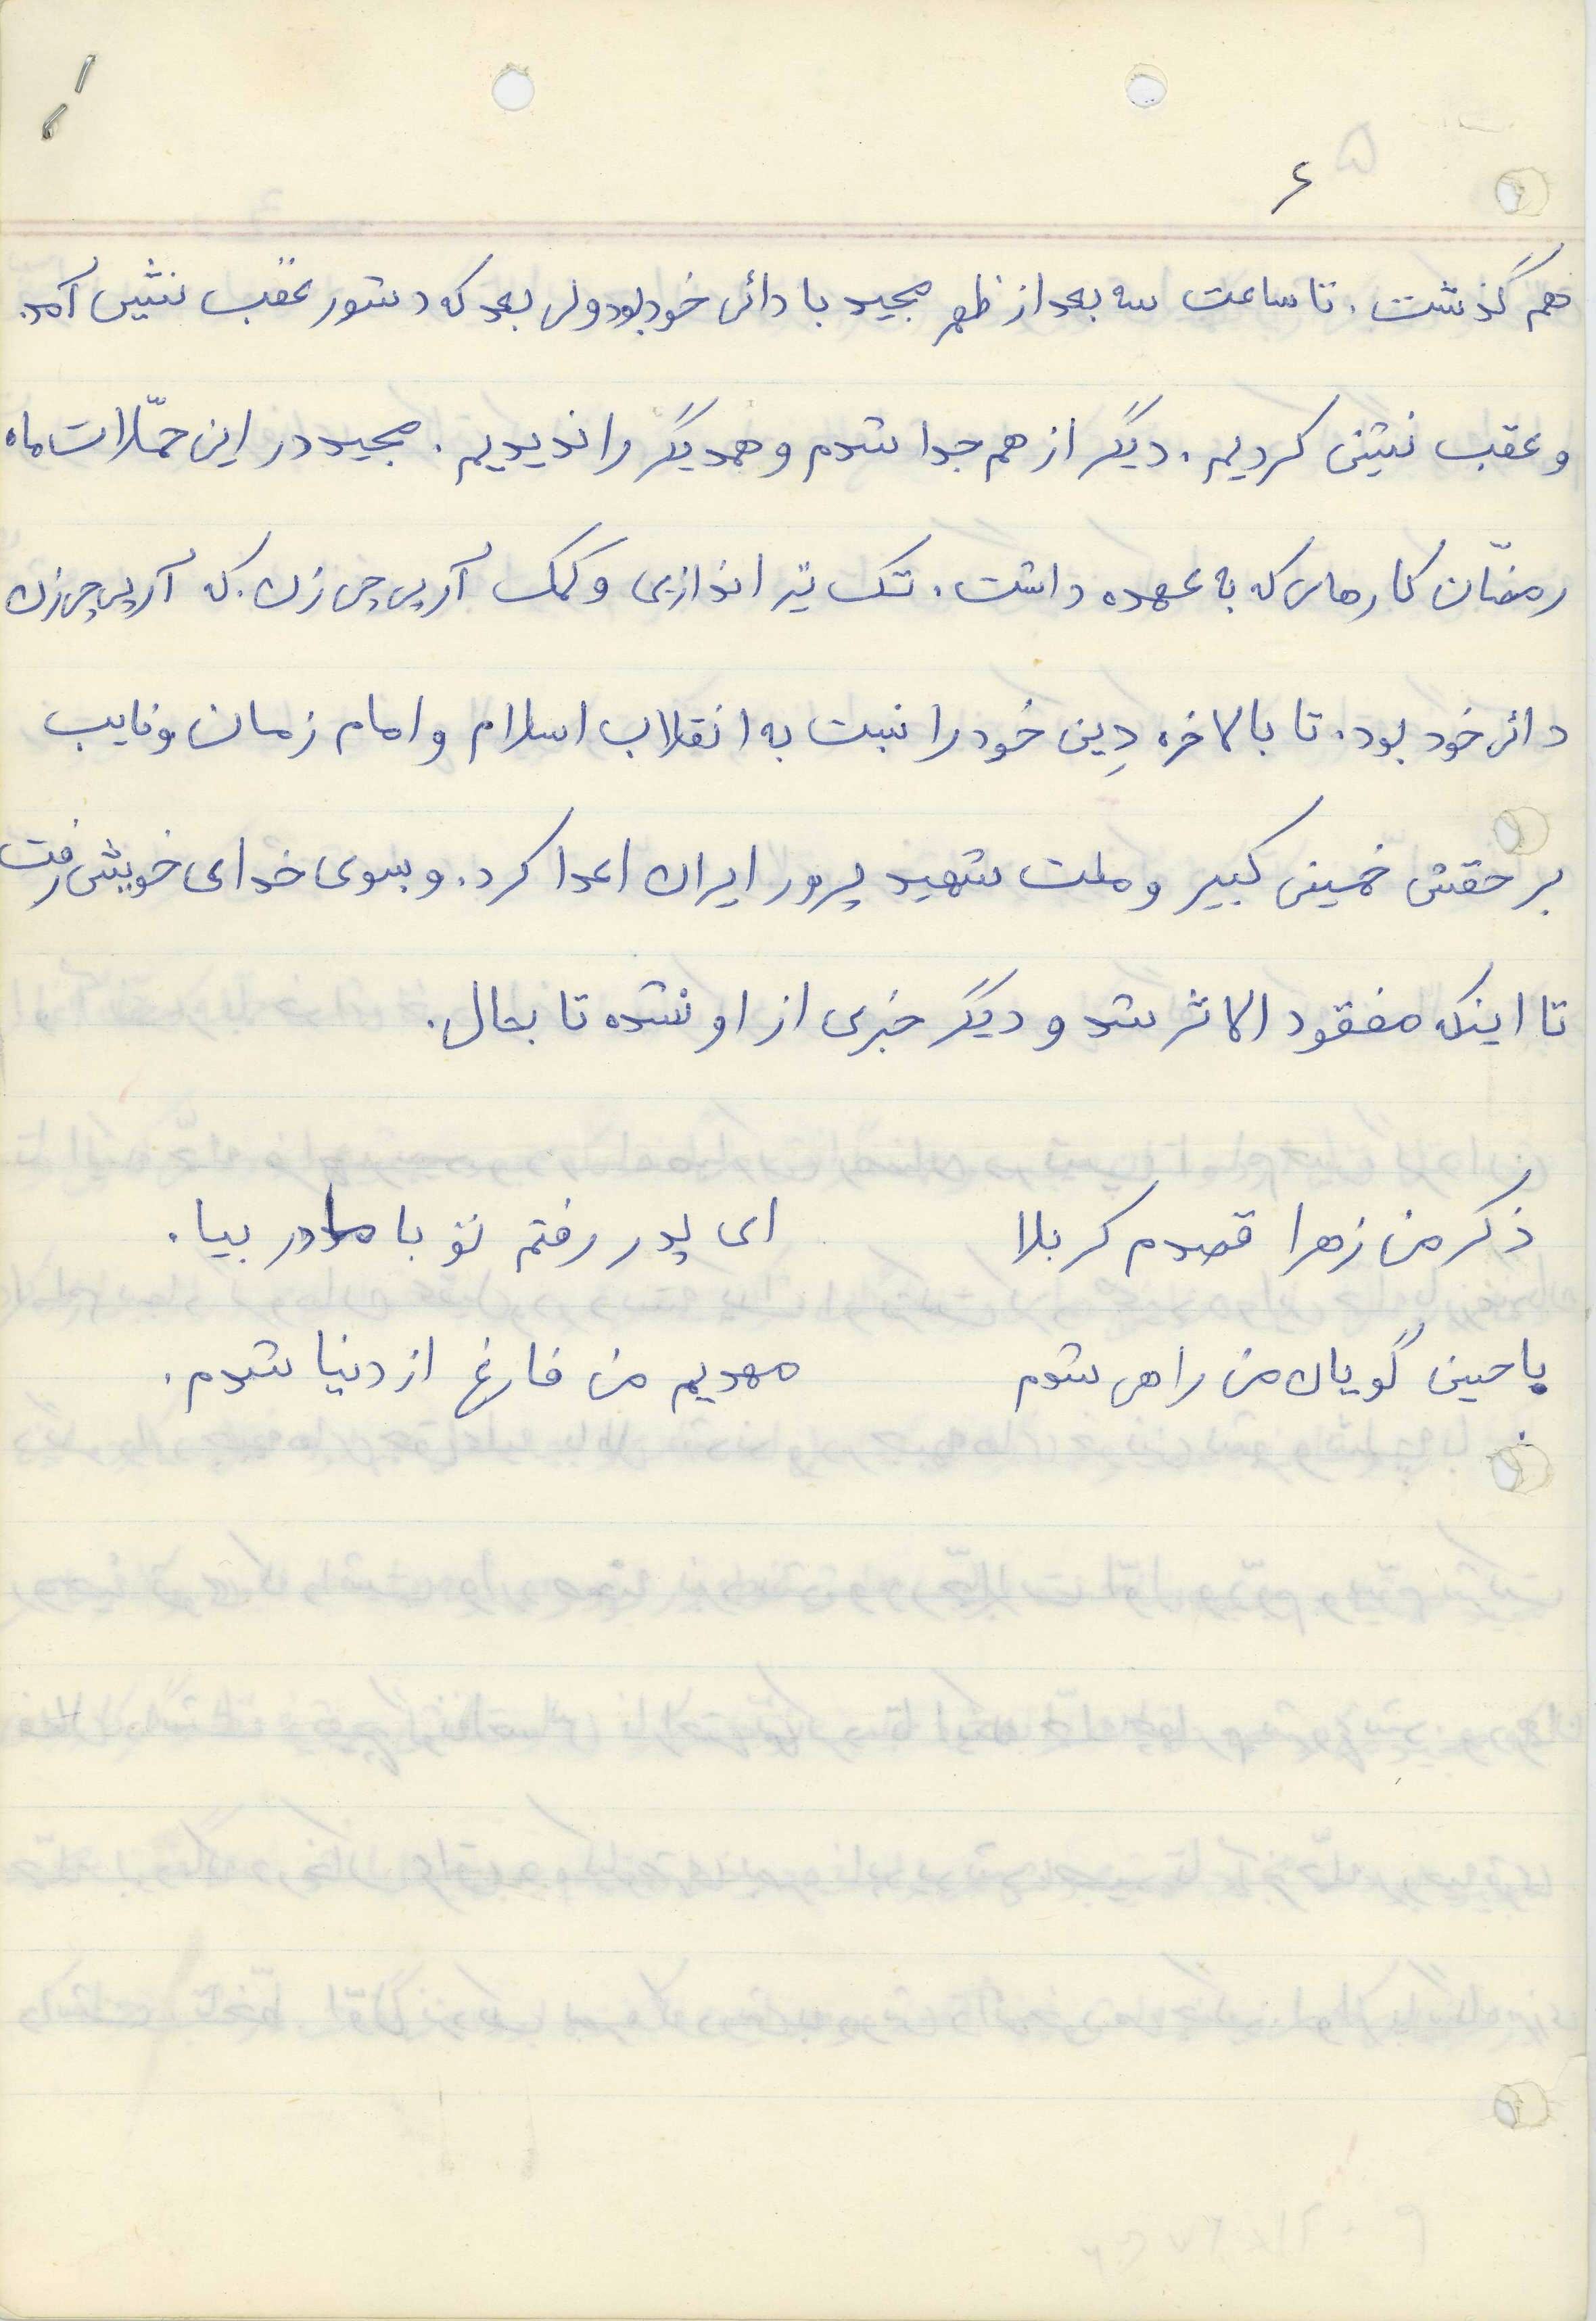 ۶
هم گذشت. تا ساعت سه بعد از ظهر مجید با دائی خود بود ولی بعد که دستور عقب نشینی آمد.
و عقب نشینی کردیم. دیگر از هم جدا شدم و همدیگر را ندیدیم. مجید در این حمّلات ماه
رمضّان کارهای که به عهده داشت. تک تیر اندازیی و کمک آر پی جی زن. که آر پی جی زن
دائی خود بود. تا بالاخره دِین خود را نسبت به انقلاب اسلام و امام زمان و نایب
بر حقش خمینی کبیر و ملت شهید پرور ایران اعدا کرد. و بسوی خدای خویش رفت
تا اینکه مفقود الاثر شد و دیگر خبری از او نشده تا بحال.
ذکر من زهرا قصدم کربلا ای پدر رفتم تو با مادر بیا.
یا حسین گویان من راهی شدم مهدیم من فارغ از دنیا شدم.